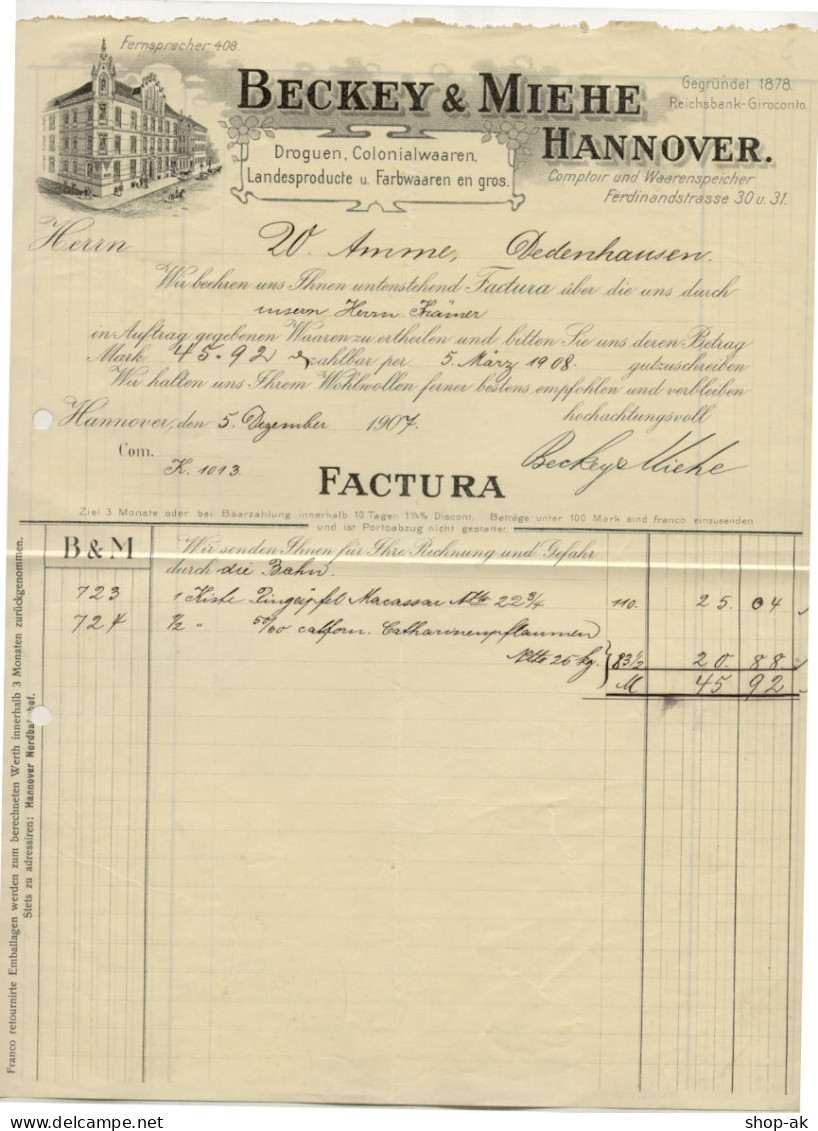 Fernsprecher 408.
BECKEY & MIEHE
HANNOVER.
Gegründet 1878.
Reichsbank-Giroconto.
Droguen, Colonialwaaren,
Landesproducte u. Farbwaaren en gros.
Comptoir und Waarenspeicher
Ferdinandstrasse 30 u. 31.
Herrn W. Amme, Dedenhausen.
Wir beehren uns Ihnen untenstehend Factura über die uns durch
unsern Herrn Krämer
in Auftrag gegebenen Waaren zu ertheilen und bitten Sie uns deren Betrag
Mark 45.92 zahlbar per 5. März 1908. gutzuschreiben
Wir halten uns Ihrem Wohlwollen ferner bestens empfohlen und verbleiben
Hannover, den 5. Dezember 1907. hochachtungsvoll
Com. Beckey & Miehe
K. 1013.
FACTURA
Ziel 3 Monate oder bei Baarzahlung innerhalb 10 Tagen 1¼% Discont. Beträge unter 100 Mark sind franco einzusenden
und ist Portoabzug nicht gestattet.
B & M Wir senden Ihnen für Ihre Rechnung und Gefahr
durch die Bahn.
723 1 Kiste Macassar Ntto 22 3/4 110. 25. 04
724 1/2 " 50/60 californ. Catharinenpflaumen
Ntto 25 kg. 83 1/2 20. 88.
M 45 92
Franco retournirte Emballagen werden zum berechneten Werth innerhalb 3 Monaten zurückgenommen.
Stets zu adressiren: Hannover Nordbahnhof.
shop-ak